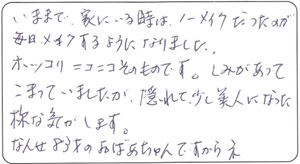 いままで、家にいる時は、ノーメイクだったのが
毎日メイクするようになりました。
ホッコリ=コニコそのものです。しみがあって
こまっていましたが、隠れて少し美人になった
様な気がします。
なんせ83才のおばあちゃんですからネ